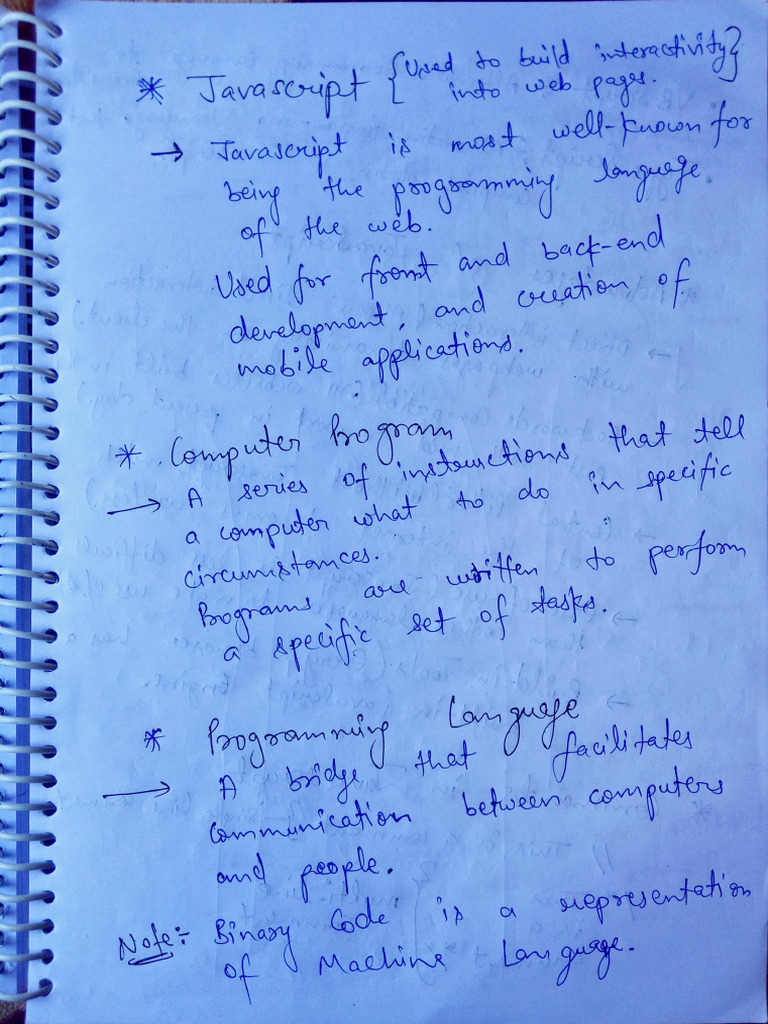 * Javascript {Used to build interactivity}
into web pages.
→ Javascript is most well-known for
being the programming language
of the web.
Used for front and back-end
development, and creation of
mobile applications.
* Computer Program
→ A series of instructions that tell
a computer what to do in specific
circumstances.
Programs are written to perform
a specific set of tasks.
* Programming Language
→ A bridge that facilitates
communication between computers
and people.
Note:- Binary Code is a representation
of Machine Language.